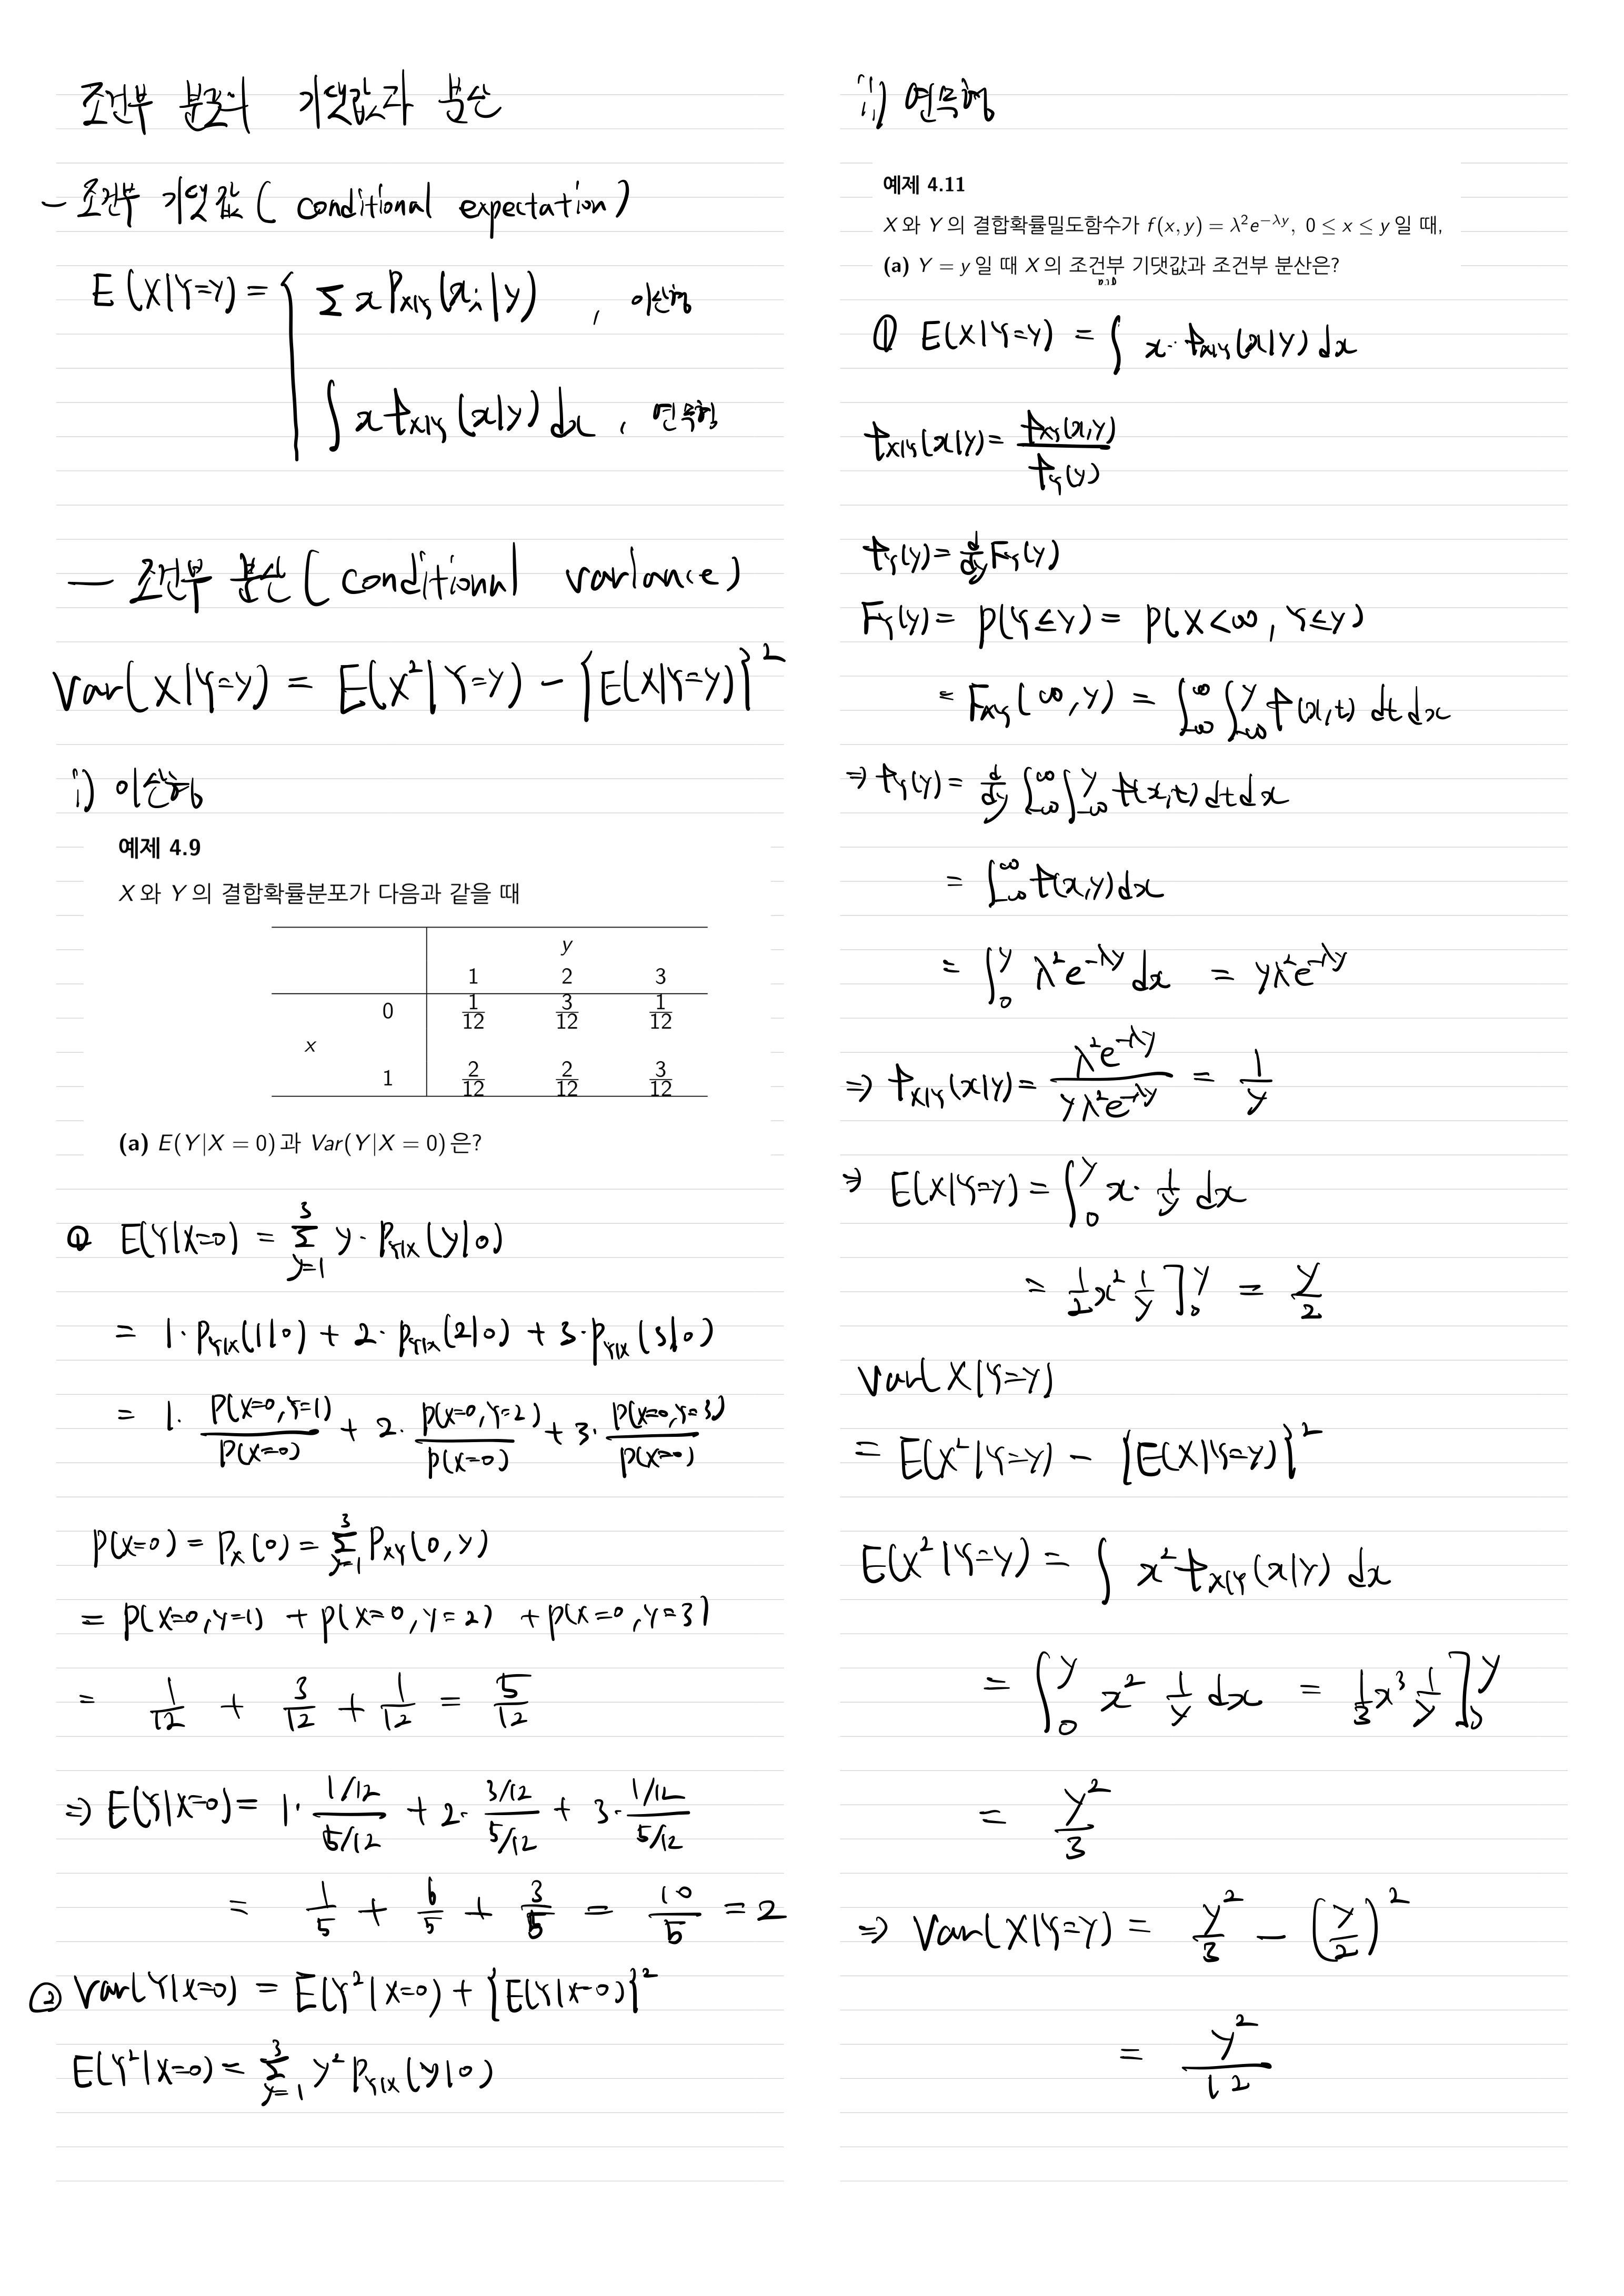 조건부 분포의 기댓값과 분산
- 조건부 기댓값 ( conditional expectation )
E (X|Y=y) = { Σ x P_{X|Y}(x_i|y) , 이산형
∫ x f_{X|Y} (x|y) dx , 연속형
- 조건부 분산 ( conditional variance )
Var( X|Y=y) = E(X²| Y=y) - {E(X|Y=y)}²
i) 이산형
예제 4.9
X 와 Y 의 결합확률분포가 다음과 같을 때
y
1 2 3
0 1/12 3/12 1/12
x
1 2/12 2/12 3/12
(a) E(Y|X = 0)과 Var(Y|X = 0)은?
① E(Y|X=0) = Σ_{y=1}^{3} y · P_{Y|X} (y|0)
= 1· P_{Y|X}(1|0) + 2· P_{Y|X}(2|0) + 3· P_{Y|X} (3|0)
= 1· P(X=0,Y=1)/P(X=0) + 2· P(X=0,Y=2)/P(X=0) + 3· P(X=0,Y=3)/P(X=0)
P(X=0) = P_X (0) = Σ_{y=1}^{3} P_{XY} (0, y)
= P( X=0, y=1) + P( X=0, y=2) + P(X=0, y=3)
= 1/12 + 3/12 + 1/12 = 5/12
⇒ E(Y|X=0) = 1· (1/12)/(5/12) + 2· (3/12)/(5/12) + 3· (1/12)/(5/12)
= 1/5 + 6/5 + 3/5 = 10/5 = 2
② Var(Y|X=0) = E(Y²|X=0) + {E(Y|X=0)}²
E(Y²|X=0) = Σ_{y=1}^{3} y² P_{Y|X} (y|0)
ii) 연속형
예제 4.11
X 와 Y 의 결합확률밀도함수가 f(x, y) = λ²e^{−λy}, 0 ≤ x ≤ y 일 때,
(a) Y = y 일 때 X 의 조건부 기댓값과 조건부 분산은?
① E(X|Y=y) = ∫ x · f_{X|Y} (x|y) dx
f_{X|Y}(x|y) = f_{XY}(x,y)/f_Y(y)
f_Y(y) = d/dy F_Y(y)
F_Y(y) = P(Y≤y) = P( X<∞, Y≤y)
= F_{XY} (∞, y) = ∫_{-∞}^{∞} ∫_{-∞}^{y} f(x,t) dt dx
⇒ f_Y(y) = d/dy ∫_{-∞}^{∞} ∫_{-∞}^{y} f(x,t) dt dx
= ∫_{-∞}^{∞} f(x,y) dx
= ∫_{0}^{y} λ²e^{-λy} dx = yλ²e^{-λy}
⇒ f_{X|Y} (x|y) = λ²e^{-λy}/yλ²e^{-λy} = 1/y
⇒ E(X|Y=y) = ∫_{0}^{y} x· 1/y dx
= 1/2 x² 1/y ]_{0}^{y} = y/2
Var( X|Y=y)
= E(X²|Y=y) - {E(X|Y=y)}²
E(X²|Y=y) = ∫ x² f_{X|Y} (x|y) dx
= ∫_{0}^{y} x² 1/y dx = 1/3 x³ 1/y ]_{0}^{y}
= y²/3
⇒ Var(X|Y=y) = y²/3 - (y/2)²
= y²/12